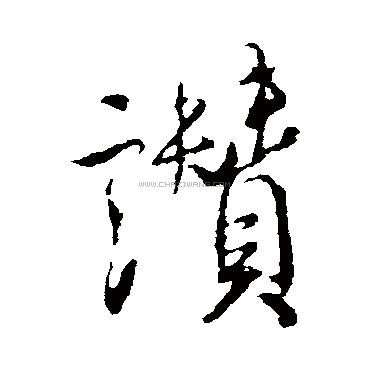 讃
WWW.CHAZIWANG.COM